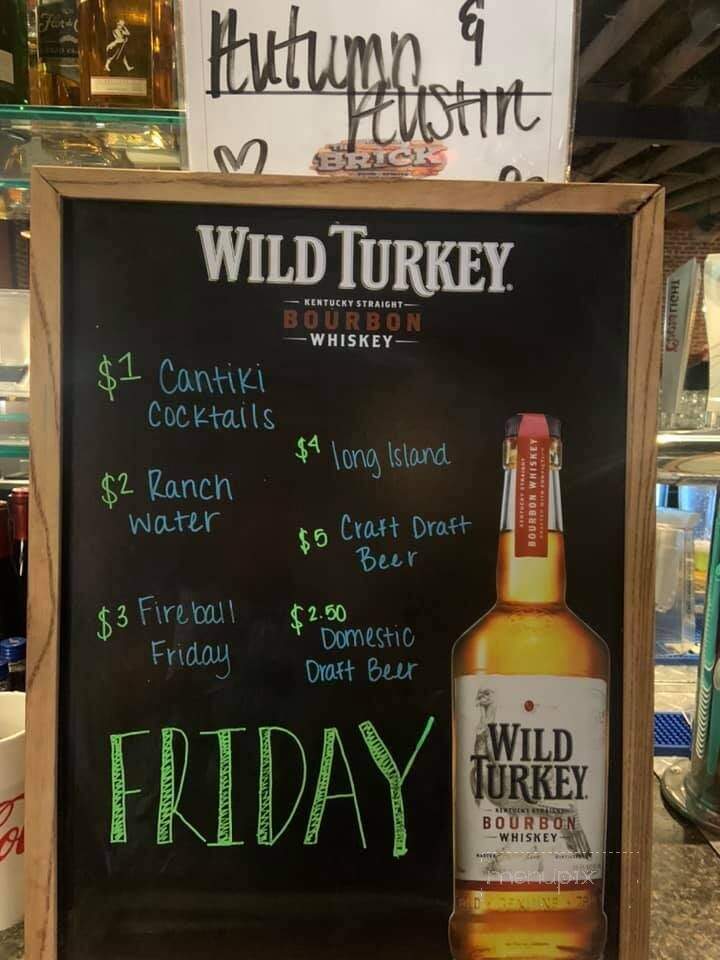 Autumn &
Austin
THE
BRICK
WILD TURKEY
KENTUCKY STRAIGHT
BOURBON
WHISKEY
$1 Cantiki
Cocktails
$4 long Island
$2 Ranch
water
$5 Craft Draft
Beer
$3 Fireball
Friday
$2.50
Domestic
Draft Beer
FRIDAY
KENTUCKY STRAIGHT
BOURBON WHISKEY
WILD
TURKEY
KENTUCKY STRAIGHT
BOURBON
WHISKEY
menupix